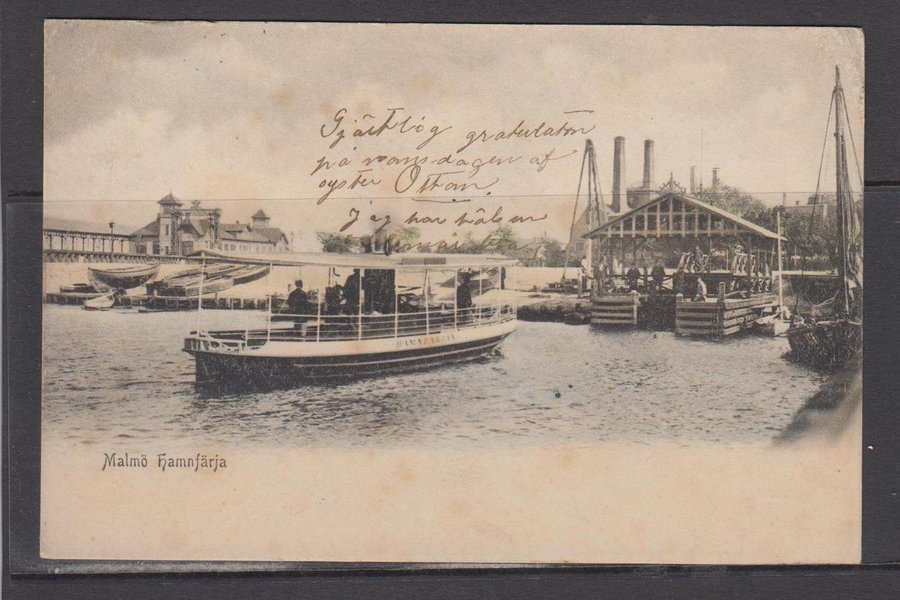 Gjärtlig gratulation
på namsdagen af
syster Ottan.
Jag har hälsen
HAMNFÄRJAN
Malmö Hamnfärja